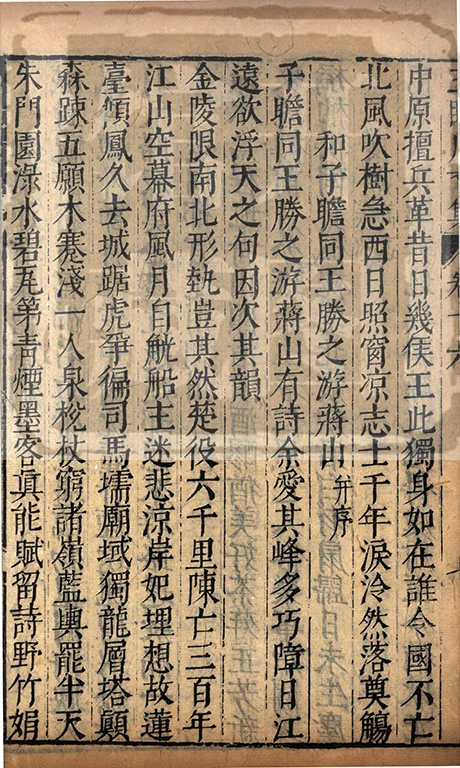 中原擅兵革昔日幾侯王此獨身如在誰令國不亡
北風吹樹急西日照窗凉志士千年淚泠然落奠觴
和子瞻同王勝之游蔣山 幷序
子瞻同王勝之游蔣山有詩余愛其峰多巧障日江
遠欲浮天之句因次其韻
金陵限南北形埶豈其然楚役六千里陳亡三百年
江山空幕府風月自觥船主迷悲涼岸妃埋想故蓮
臺傾鳳久去城踞虎爭偏司馬壖廟域獨龍層塔顛
森踈五願木蹇淺一人泉梲杖窮諸嶺藍輿罷半天
朱門園淥水碧瓦第青煙墨客眞能賦留詩野竹娟